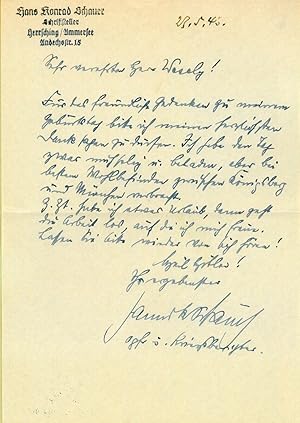 Hans Konrad Schauer
Schriftsteller
Herrsching/Ammersee
Andechsstr. 15
29.5.42.
Sehr verehrter Herr Wesely!
Für das freundliche Gedenken zu meinem
Geburtstag bitte ich meinen herzlichsten
Dank sagen zu dürfen. Ich habe den Tag
zwar mühselig u. beladen, aber bei
bestem Wohlbefinden zwischen Königsberg
und München verbracht.
Z. Zt. habe ich etwas Urlaub, dann geht
die Arbeit los, auf die ich mich freue.
Lassen Sie bitte wieder von sich hören!
Heil Hitler!
Ihr ergebenster
u. Kriegsberichter.